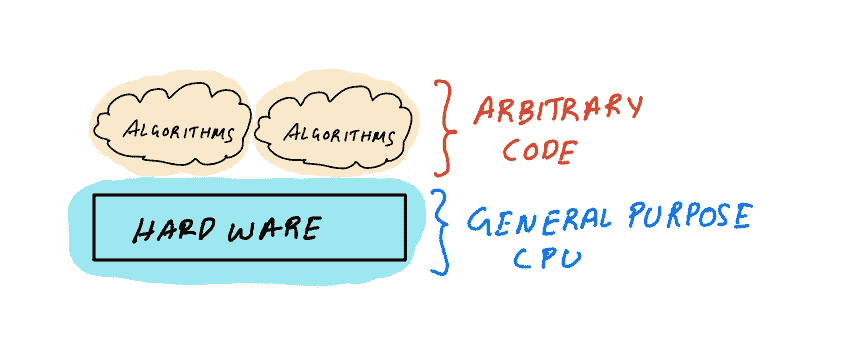 ALGORITHMS
ALGORITHMS
ARBITRARY
CODE
HARDWARE
GENERAL PURPOSE
CPU